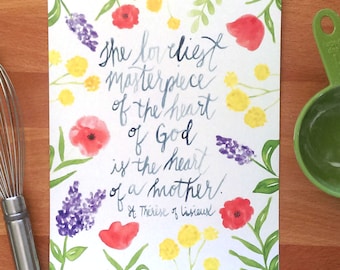 The loveliest
masterpiece
of the heart
of God
is the heart
of a mother.
St Thérèse of Lisieux